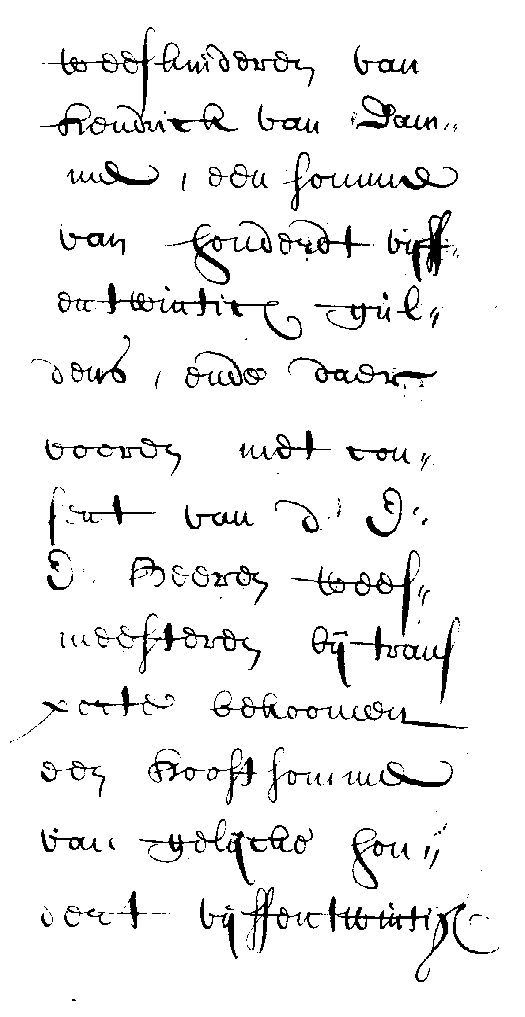 weeskinderen van
hendrick van Dam„
me, een somme
van hondert vijff„
entwintich gul„
dens, ende daer
vooren met con„
sent van d' I„
I. Heeren wees„
meesteren bij trans
xxxte bekoomen
den hooft somme
van gelycke hon„
dert vijffentwintich